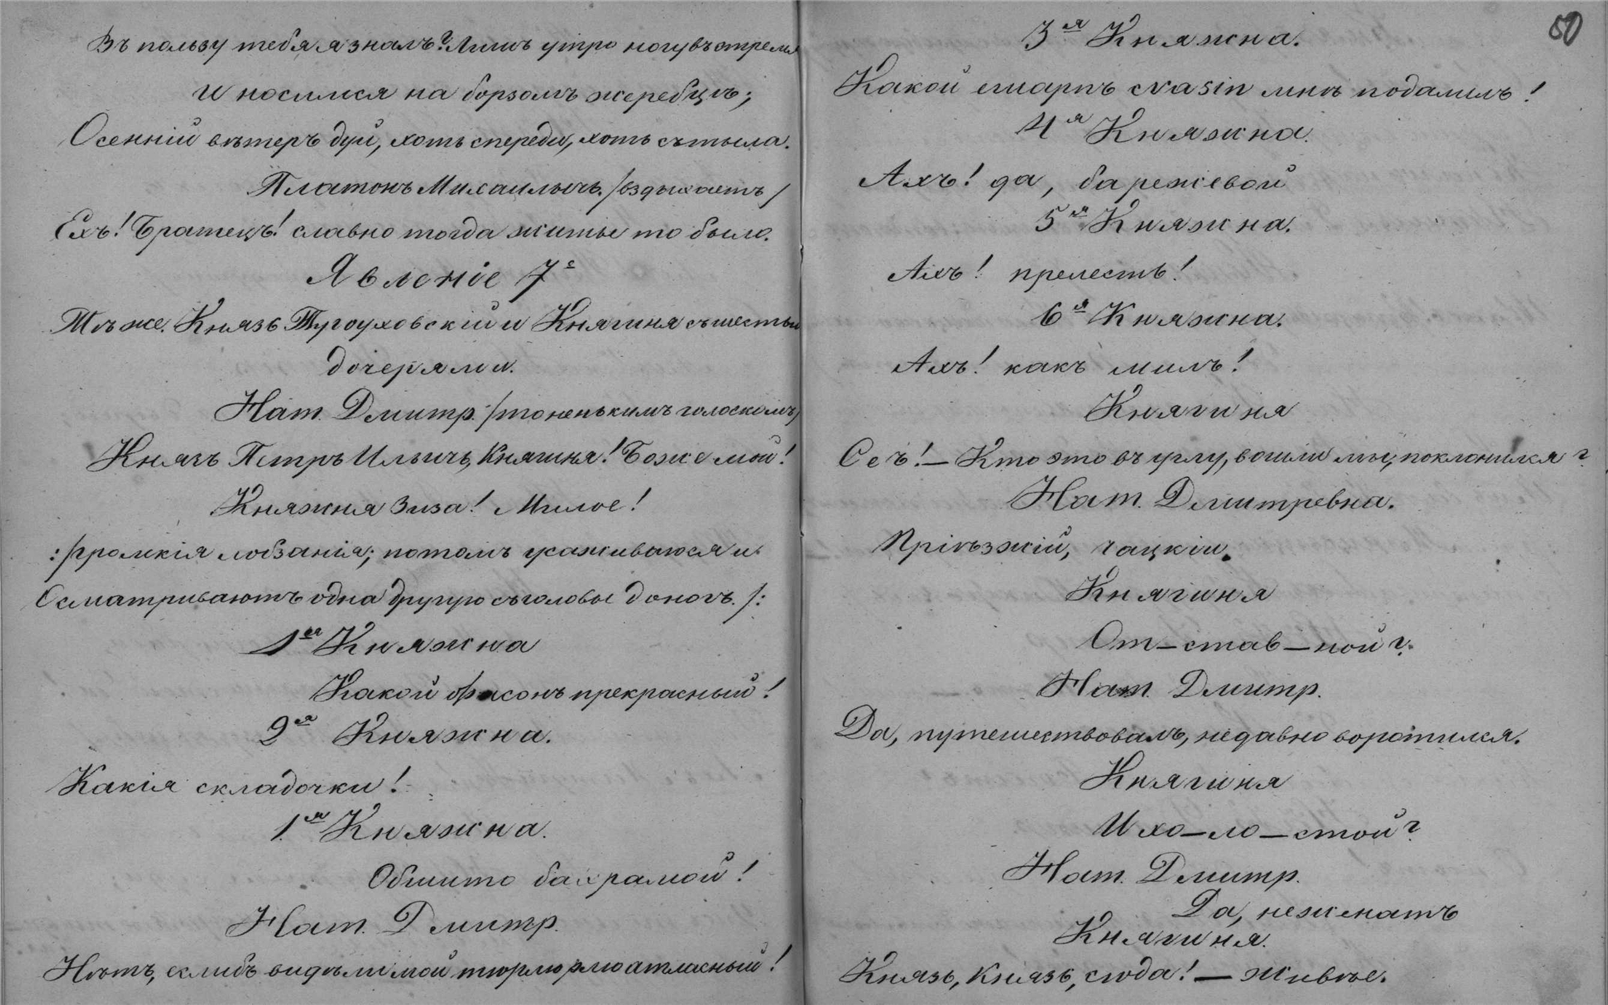 Въ пользу тебя я зналъ? Лишъ утро ногу въ стремя
И носился на борзомъ жеребцѣ;
Осенній вѣтеръ дуй, хоть спереди, хоть съ тыла.
Платонъ Михаилычь. /вздыхаетъ/
Ехъ! Братецъ! славно тогда житье то было.
Явленіе 7е
Тѣ же. Князь Тугоуховскій и Княгиня съ шестью
дочерями.
Нат. Дмитр. /тоненькимъ голоскомъ/
Князь Петръ Ильичь, Княгиня! Боже мой!
Княжна Зиза! Милое!
:/громкія лобзанія; потомъ усаживаются и
Осматриваютъ одна другую съ головы до ногъ./:
1ая Княжна
Какой фасонъ прекрасный!
2ая Княжна.
Какія складочки!
1ая Княжна.
Обшито бахрамой!
Нат. Дмитр.
Нѣтъ, если бъ видѣли мой тюрлюрлю атласный!
50
3я Княжна.
Какой ешарпъ cvasin мнѣ подамилъ!
4я Княжна.
Ахъ! да, барежевой
5ая Княжна.
Ахъ! прелесть!
6я Княжна.
Ахъ! какъ милъ!
Княгиня
Ссъ! — Кто это въ углу, вошли мы, поклонился?
Нат. Дмитревна.
Пріѣзжій, чацкій.
Княгиня
От — став — ной?
Нат. Дмитр.
Да, путешествовалъ, недавно воротился.
Княгиня
И хо — ло — стой?
Нат. Дмитр.
Да, неженатъ
Княгиня.
Князь, Князь, сюда! — Живѣе.